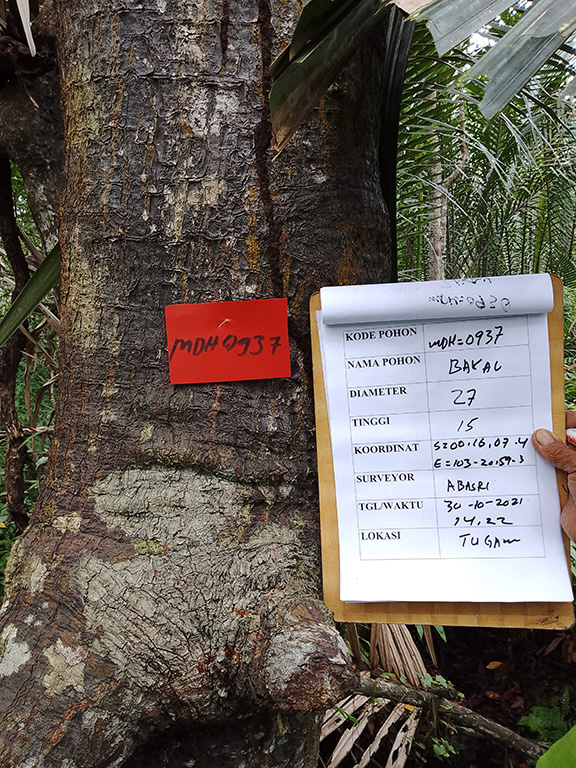 MDH=0937
KODE POHON MDH=0937
NAMA POHON BAKAU
DIAMETER 27
TINGGI 15
KOORDINAT S=00.16.07.4
E=103-20.59.3
SURVEYOR ABASRI
TGL/WAKTU 30-10-2021
14.22
LOKASI